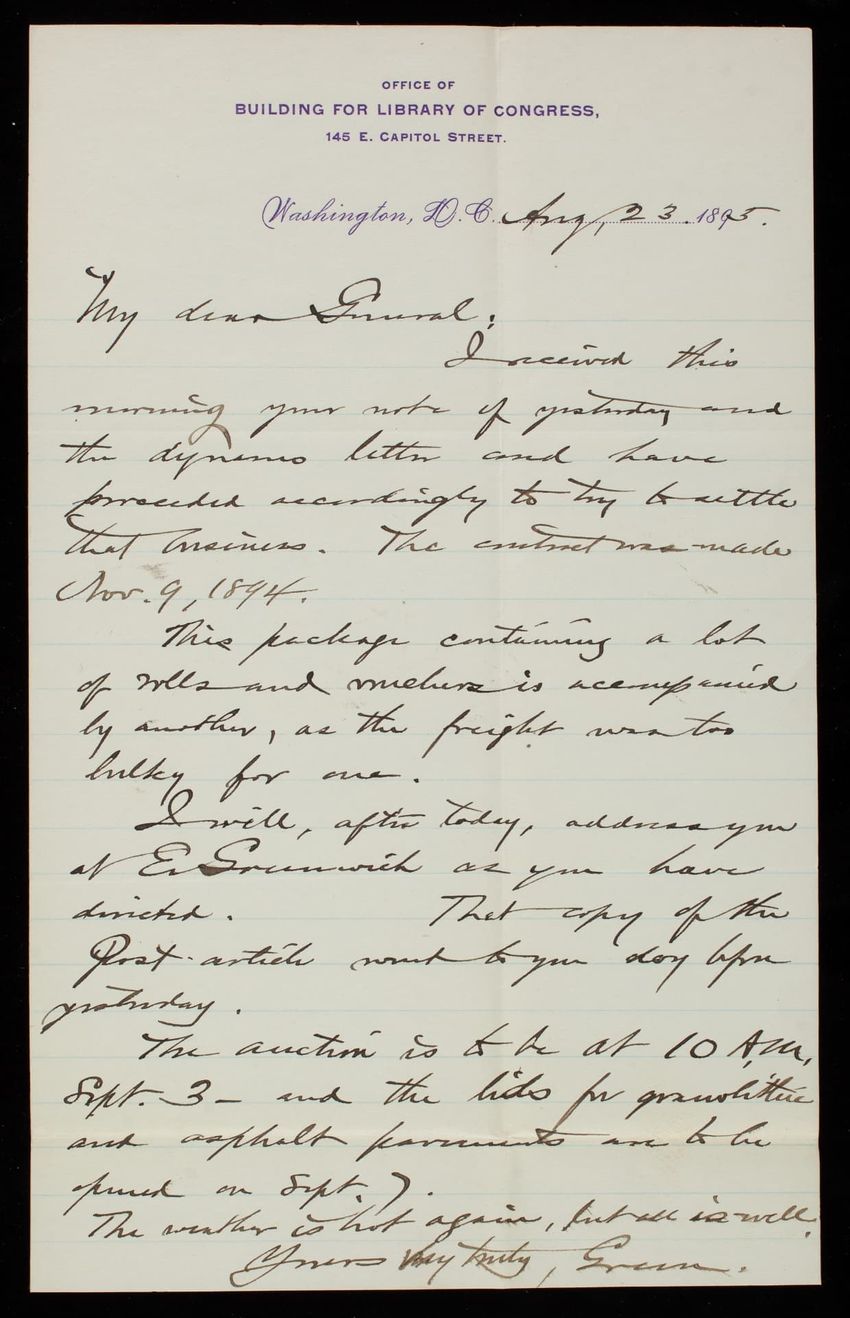 OFFICE OF
BUILDING FOR LIBRARY OF CONGRESS,
145 E. CAPITOL STREET.
Washington, D.C. Aug, 23. 1895.
My dear General:
I received this
morning your note of yesterday and
the dynamo letter and have
proceeded accordingly to try to settle
that business. The contract was made
Nov. 9, 1894.
This package containing a lot
of rolls and vouchers is accompanied
by another, as the freight was too
bulky for one.
I will, after today, address you
at E. Greenwich as you have
directed. That copy of the
Post article went to you day before
yesterday.
The auction is to be at 10 A.M.,
Sept. 3 - and the bids for granolithic
and asphalt pavements are to be
opened on Sept. 7.
The weather is hot again, but all is well.
Yours very truly, Green.